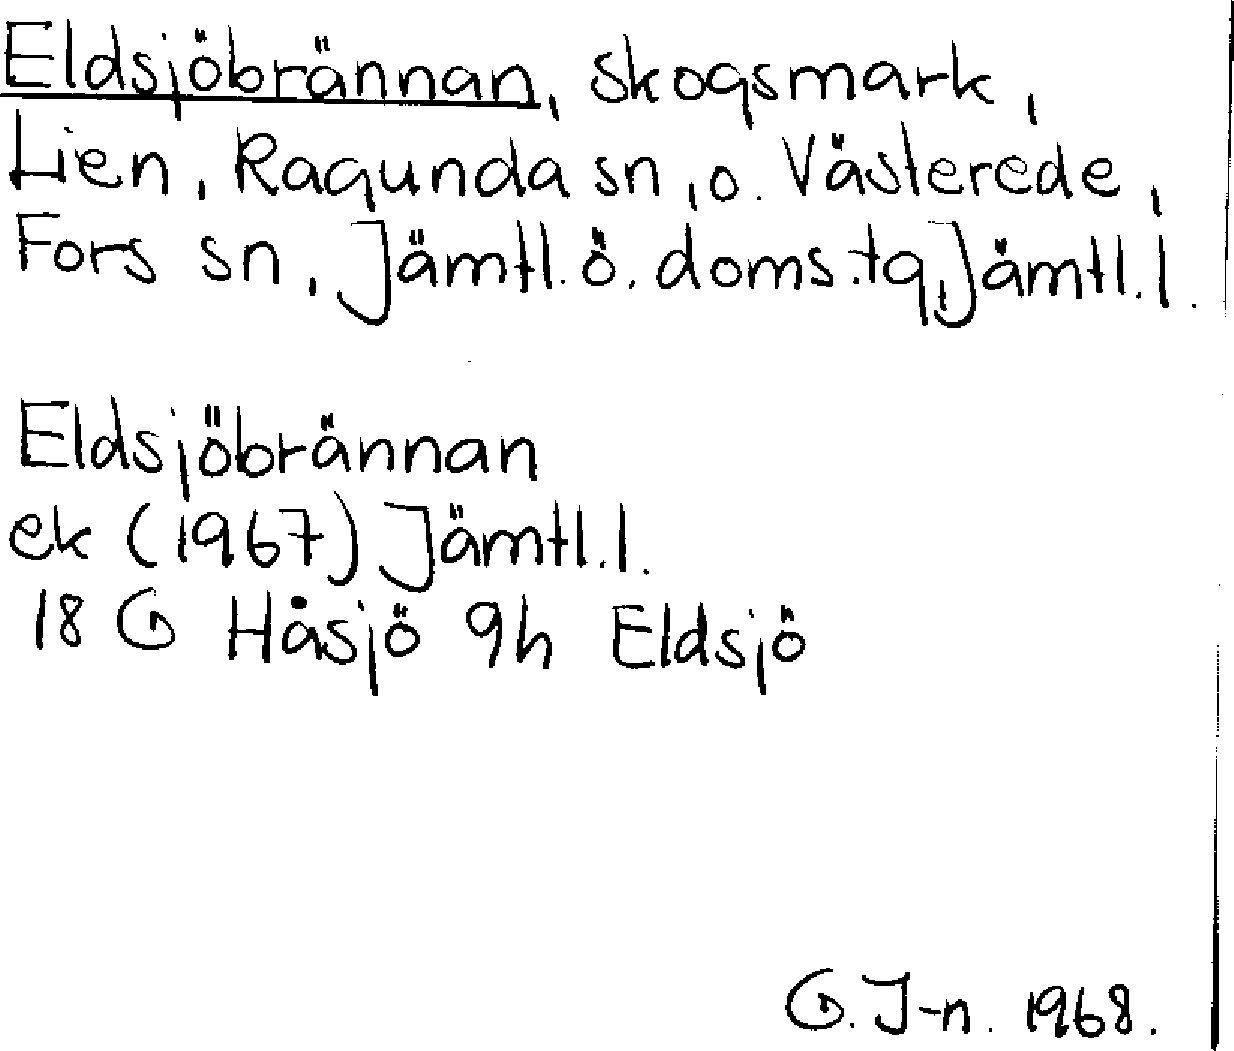 Eldsjöbrännan, skogsmark,
Lien, Ragunda sn, o. Västerede,
Fors sn, Jämtl. ö. doms. tg, Jämtl. l.
Eldsjöbrännan
ek (1967) Jämtl. l.
18 G Håsjö 9h Eldsjö
G. J-n. 1968.